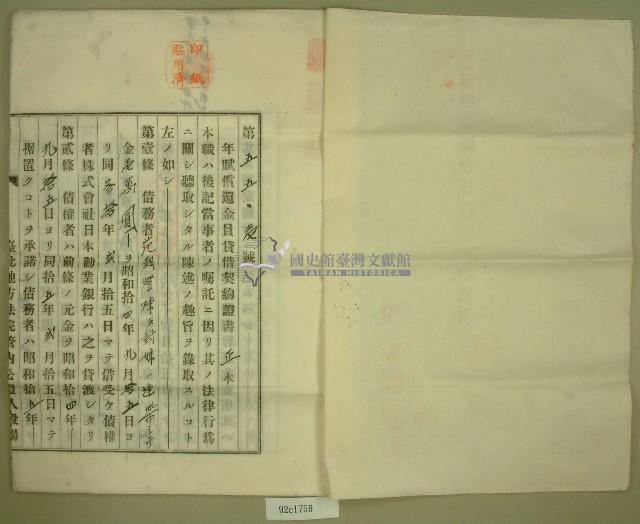 印紙
貼用済
第五五〇
年賦償還金員貸借契約證書
本職ハ後記當事者ノ囑託ニ因リ其ノ法律行爲
ニ關シ聽取シタル陳述ノ趣旨ヲ錄取スルコト
左ノ如シ
第壹條 債務者
金 ヲ昭和拾四年九月拾五日ヨ
リ同 拾年貳月拾五日マテ借受ケ債權
者株式會社日本勸業銀行ハ之ヲ貸渡シタリ
第貳條 債權者ハ前條ノ元金ヲ昭和拾四年
九月拾五日ヨリ同拾五年貳月拾五日マテ
据置クコトヲ承諾シ債務者ハ昭和拾五年
臺北地方法院管內公證人役場
國史館臺灣文獻館
TAIWAN HISTORICA
92c1759